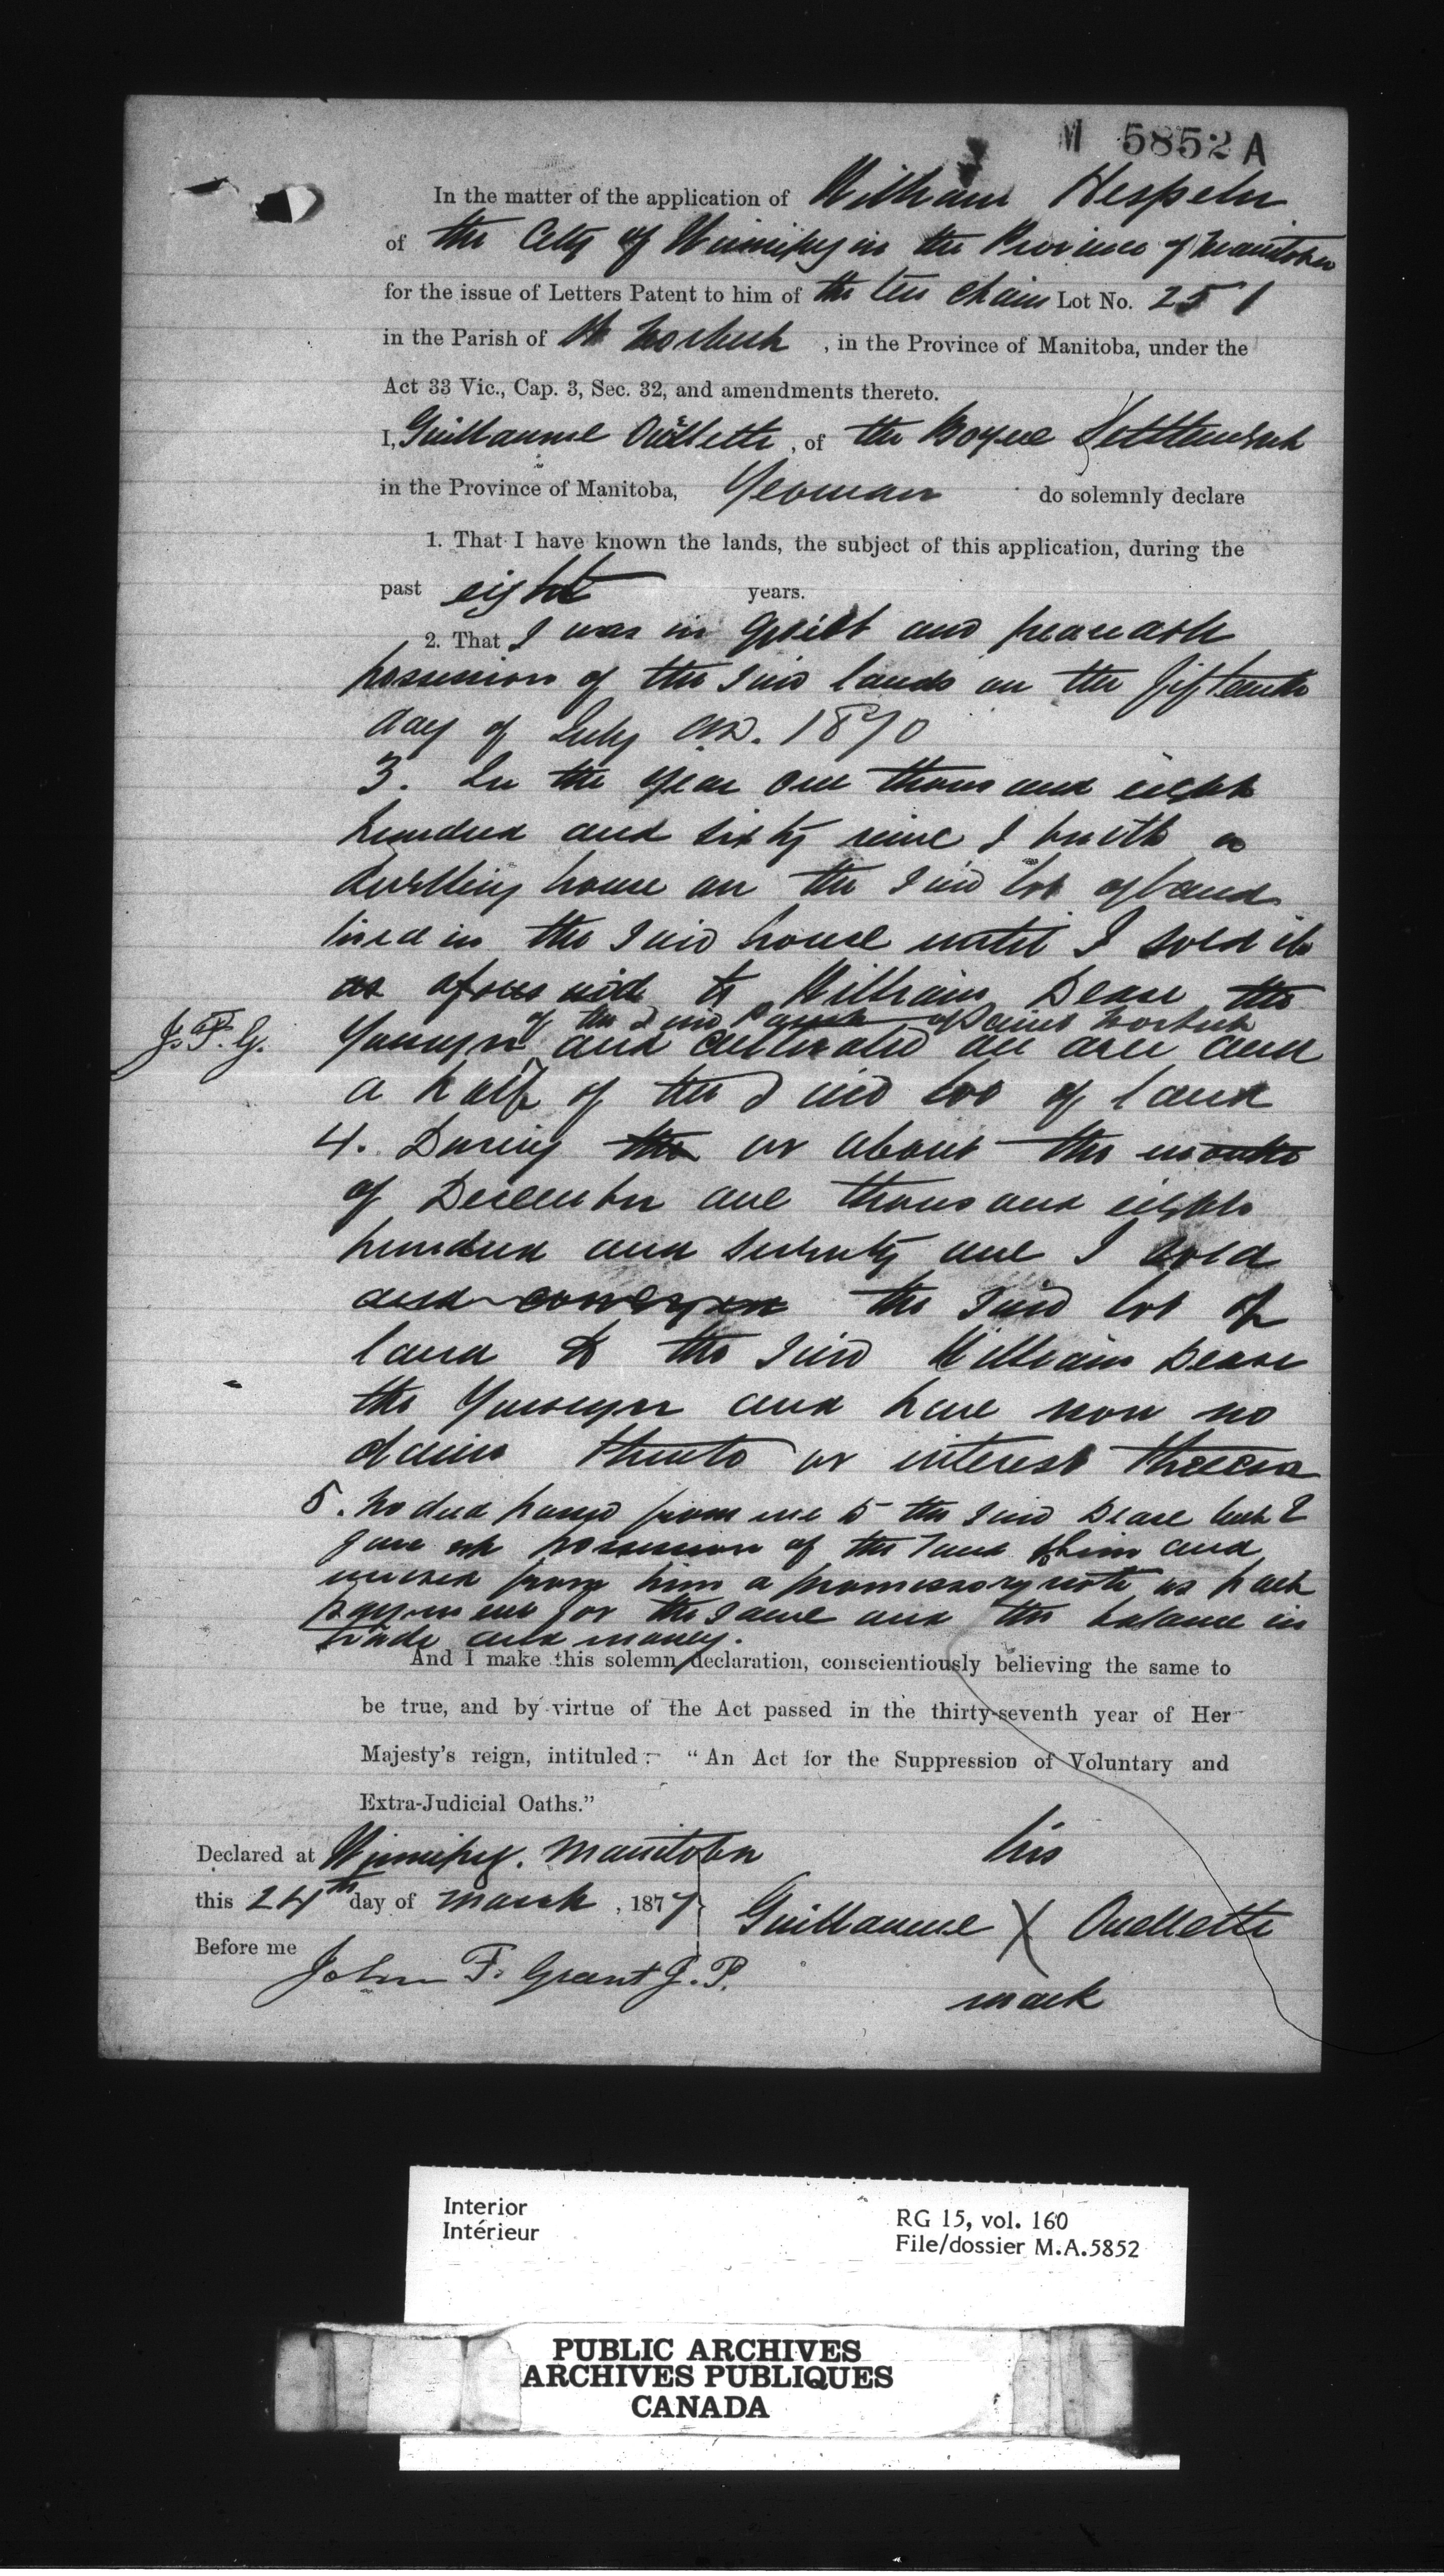 M 5852 A
In the matter of the application of William Hespeler
of the City of Winnipeg in the Province of Manitoba
for the issue of Letters Patent to him of the ten chain Lot No. 251
in the Parish of St Norbert, in the Province of Manitoba, under the
Act 33 Vic., Cap. 3, Sec. 32, and amendments thereto.
I, Guillaume Ouellette, of the Boyne Settlement
in the Province of Manitoba, Yeoman do solemnly declare
1. That I have known the lands, the subject of this application, during the
past eight years.
2. That I was in quiet and peaceable
possession of the said lands on the fifteenth
day of July A.D. 1870
3. In the year one thousand eight
hundred and sixty nine I built a
dwelling house on the said lot of land
lived in the said house until I sold it
as aforesaid to William Dease the
of the said Parish of Saint Norbert
J.F.G. Younger and cultivated an acre and
a half of the said lot of land
4. During the or about the month
of December one thousand eight
hundred and seventy one I sold
and the said lot of
land to the said William Dease
the Younger and have now no
claim thereto or interest therein
5. No deed passed from me to the said Dease but I
gave up possession of the land to him and
received from him a promissory note as part
payment for the same and the balance in
trade and money.
And I make this solemn declaration, conscientiously believing the same to
be true, and by virtue of the Act passed in the thirty-seventh year of Her
Majesty's reign, intituled: "An Act for the Suppression of Voluntary and
Extra-Judicial Oaths."
Declared at Winnipeg. Manitoba
this 24th day of March, 1877
Before me
John F. Grant J.P.
his
Guillaume X Ouellette
mark
Interior
Intérieur
RG 15, vol. 160
File/dossier M.A.5852
PUBLIC ARCHIVES
ARCHIVES PUBLIQUES
CANADA